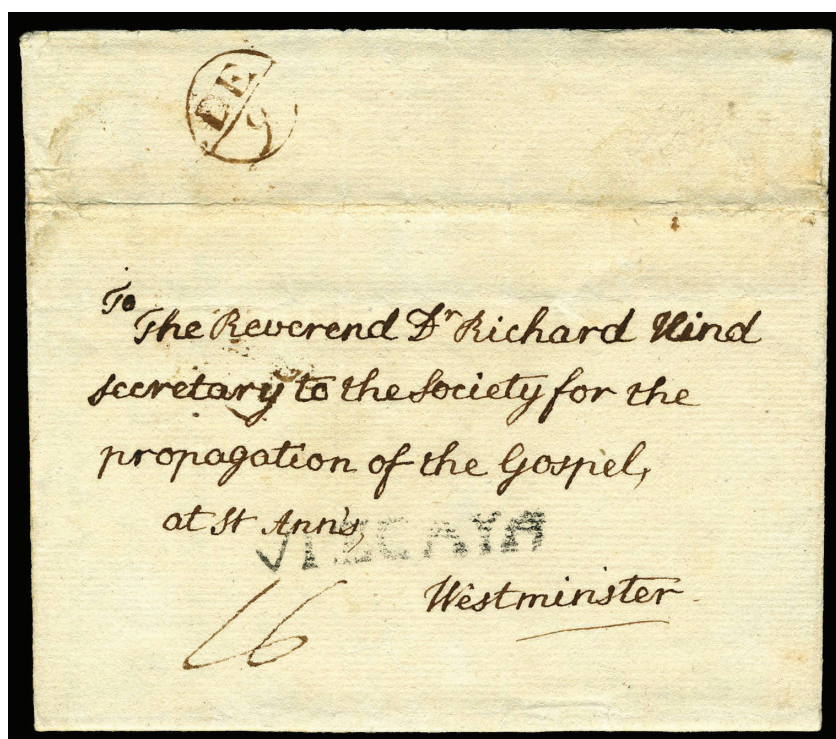 DE
9
To
The Reverend Dr Richard Hind
secretary to the Society for the
propagation of the Gospel,
at St Ann's,
VIZCAYA
Westminster